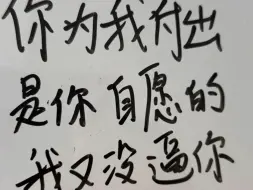 你为我付出
是你自愿的
我又没逼你